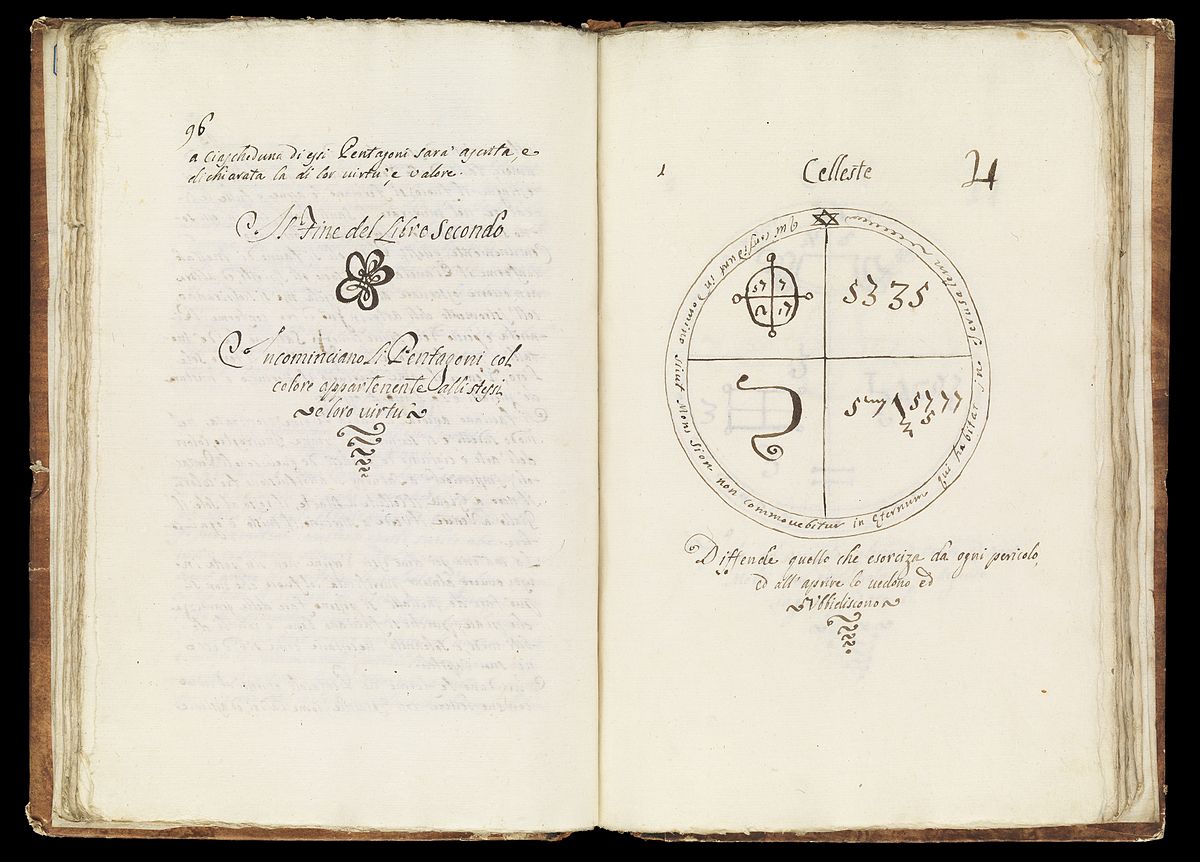 96
a ciascheduna di essi Pentagoni sarà ascritta, e
dichiarata la di lor virtù, e valore.
Il Fine del Libro Secondo
Incominciano li Pentagoni col
colore appartenente alli stessi
e loro virtù
1
Celleste
qui confidunt in Domino sicut Mons Sion non commovebitur in Eternum qui habitat in Jerusalem
5335
Diffende quello che esorciza da ogni pericolo,
ed all'aprire lo vedono ed
Ubbidiscono